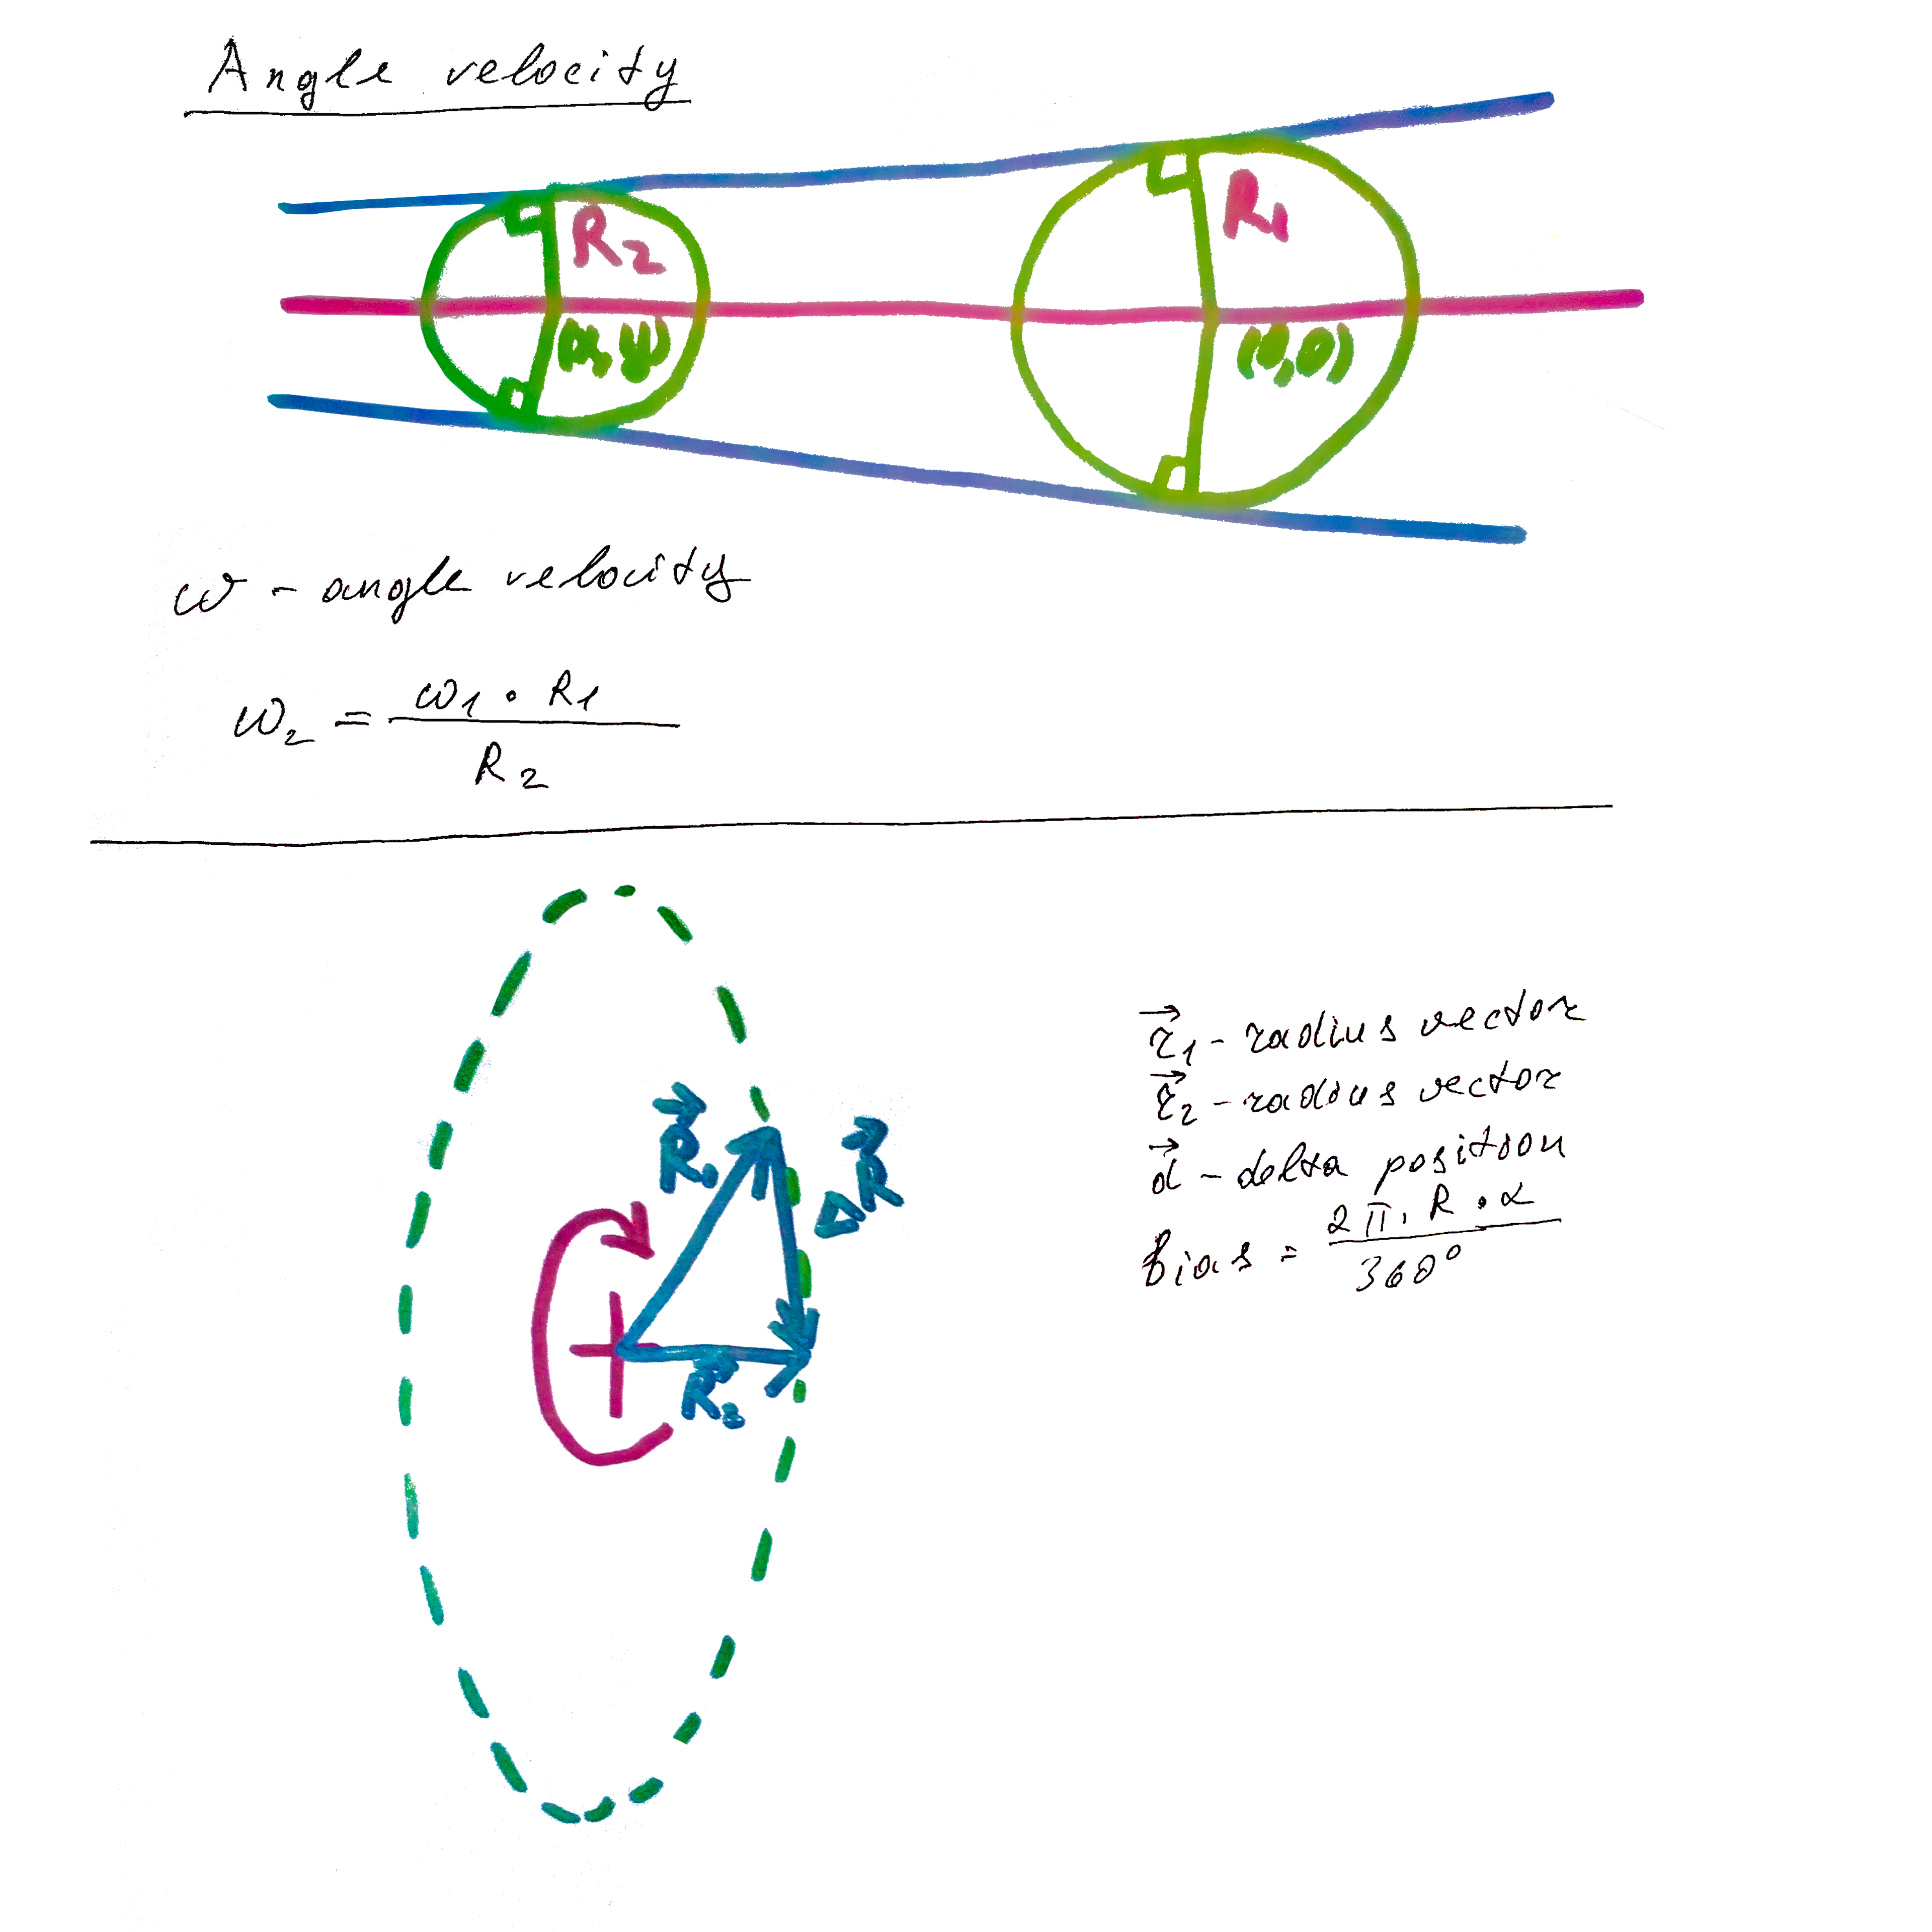 Angle velocity
R₂
R₁
(x, y)
(0,0)
ω - angle velocity
ω₂ = ω₁ · R₁
R₂
r⃗₁ - radius vector
r⃗₂ - radius vector
d⃗ - delta position
bias = 2π · R · α
360°
R⃗₁
ΔR⃗
R⃗₂